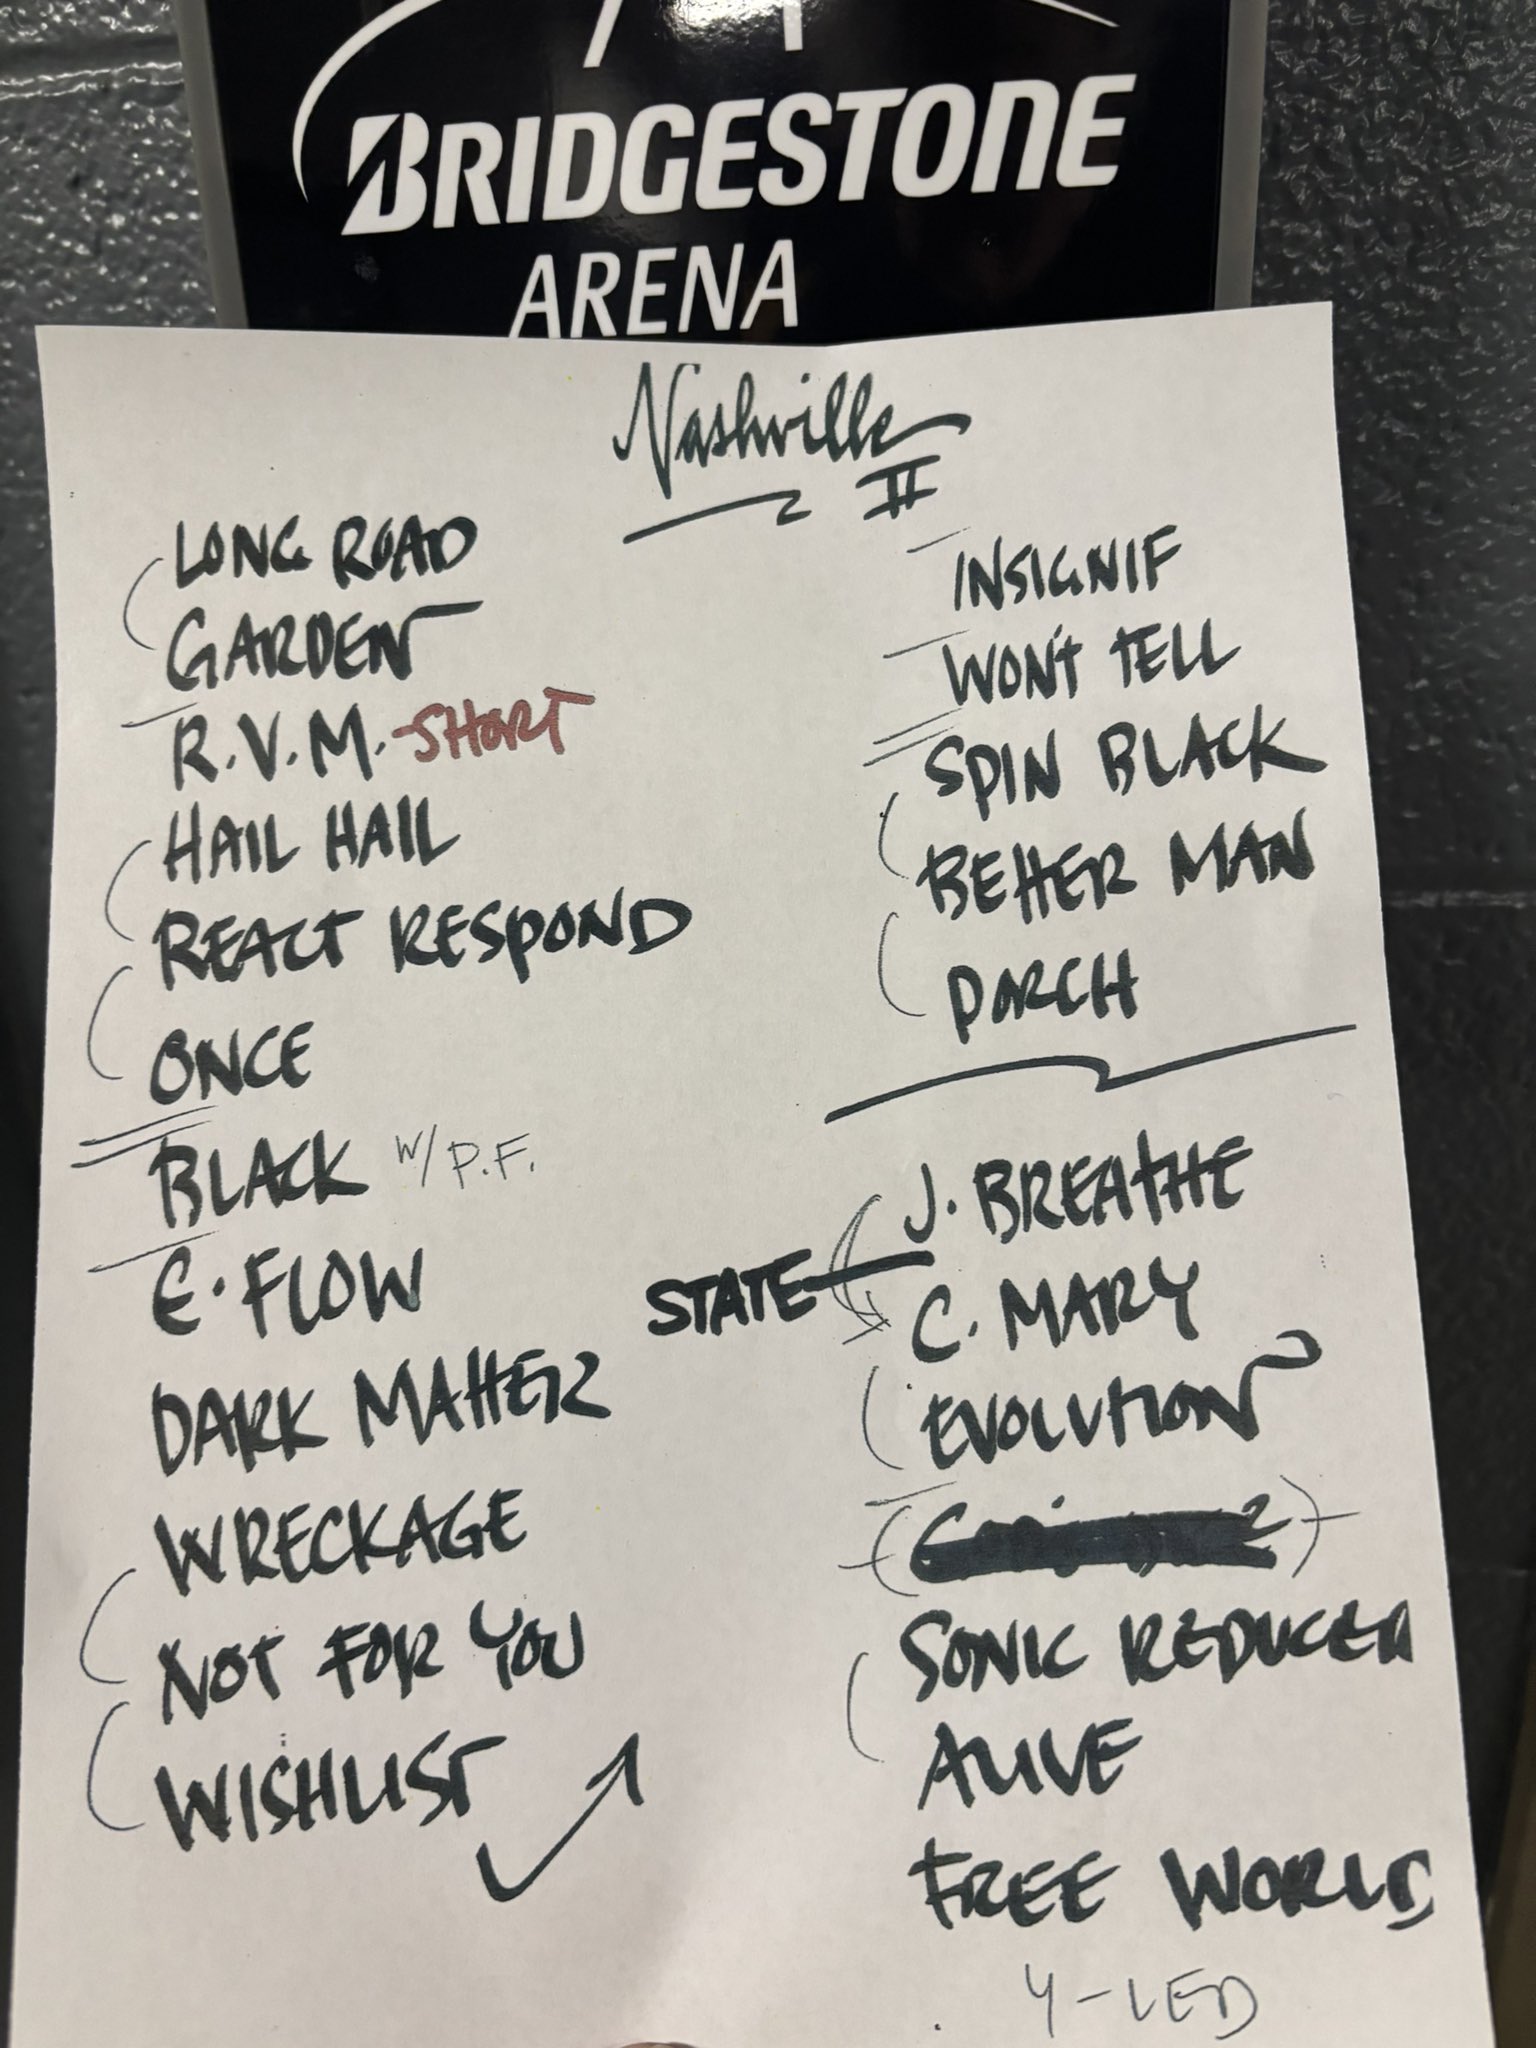 BRIDGESTONE
ARENA
Nashville
II
LONG ROAD
GARDEN
R.V.M. - SHORT
HAIL HAIL
REACT RESPOND
ONCE
BLACK w/ P.F.
E. FLOW
DARK MATTER
WRECKAGE
NOT FOR YOU
WISHLIST
INSIGNIF
WON'T TELL
SPIN BLACK
BETTER MAN
PORCH
J. BREATHE
STATE
C. MARY
EVOLUTION
SONIC REDUCER
ALIVE
FREE WORLD
Y-LED